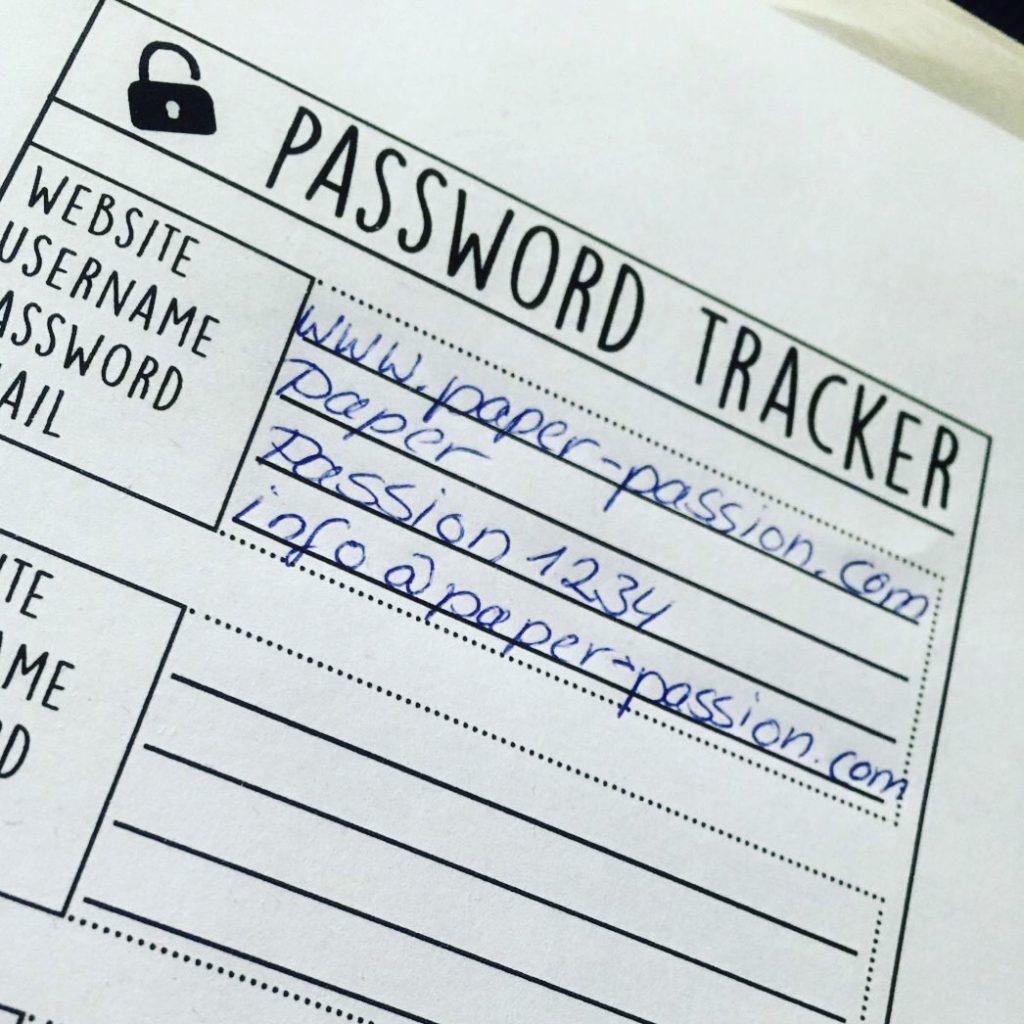 PASSWORD TRACKER
WEBSITE www.paper-passion.com
USERNAME Paper
ASSWORD Passion 1234
AIL info@paper-passion.com
ITE
AME
RD